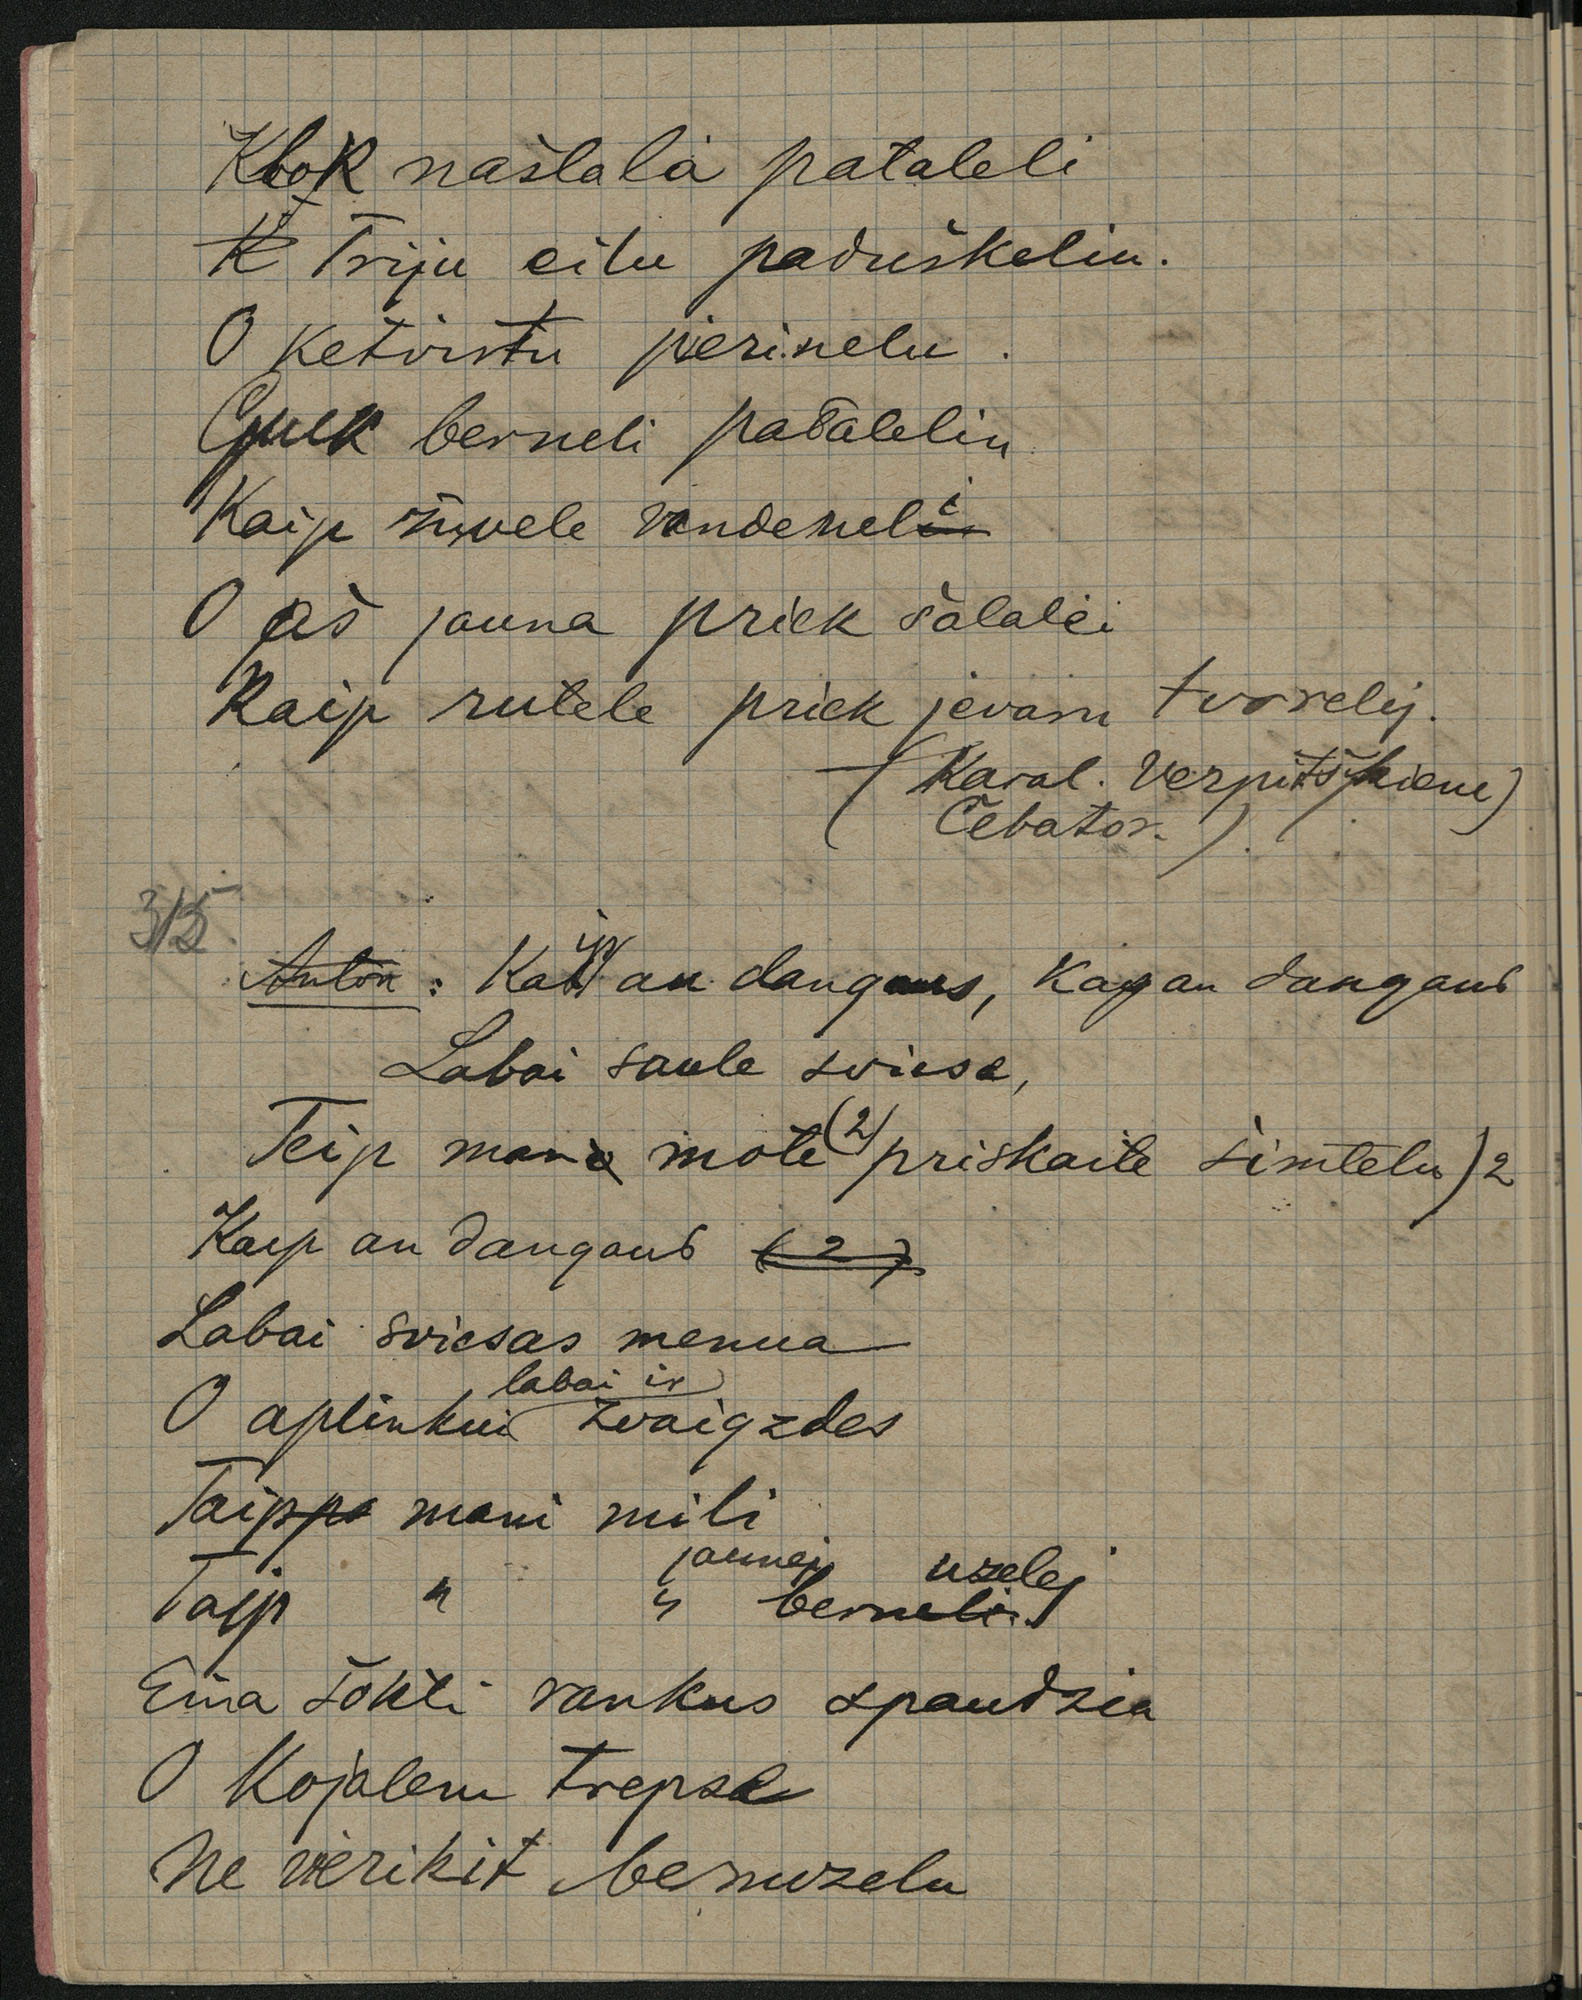 Klok našlala pataleli
Triju eilu paduškeliu.
O ketvirtu pierinelu.
Gulk berneli patalelin
Kaip žuvele vandeneli
O aš jauna priek šalalei
Kaip rutele priek jevaru tvorelij.
(Karal. Verpitškiene)
(Čebator.)
315.
Anton: Kaip an dangaus, Kap an dangaus
Labai saule sviese,
Teip mani mote (2) priskaite šimtelu) 2
Kaip an dangaus (2)
Labai sviesas menua
O aplinkui labai ir zvaigzdes
Taip mani mili
Taip " " jaunej bernuzelej
Eina šokti rankus spaudzia
O Kojalem trepse
Ne vierikit bernuzelu